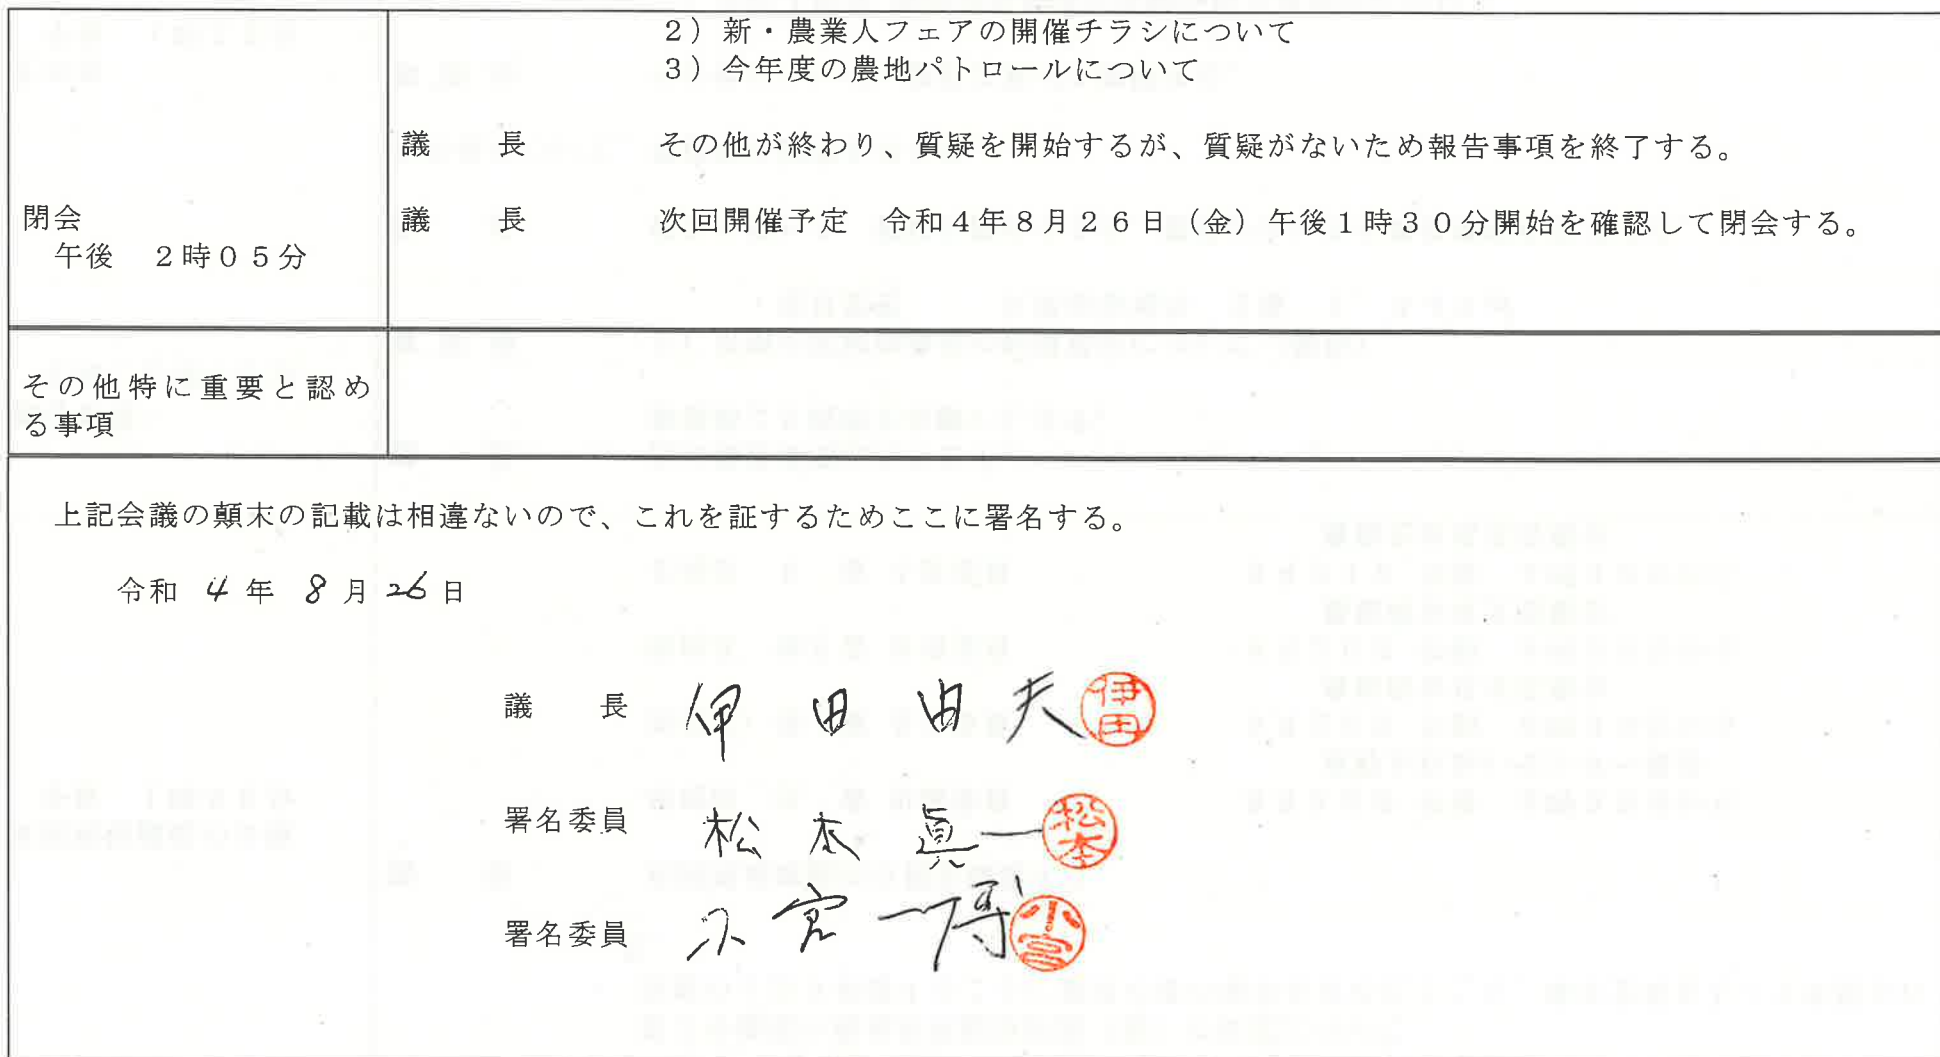 ２）新・農業人フェアの開催チラシについて
３）今年度の農地パトロールについて
議　　長　　その他が終わり、質疑を開始するが、質疑がないため報告事項を終了する。
閉会　　議　　長　　次回開催予定　令和４年８月２６日（金）午後１時３０分開始を確認して閉会する。
午後　２時０５分
その他特に重要と認め
る事項
上記会議の顛末の記載は相違ないので、これを証するためここに署名する。
令和 4 年 8 月 26 日
議　　長　伊田由夫 伊田
署名委員　松本眞一 松本
署名委員　小宮一博 小宮